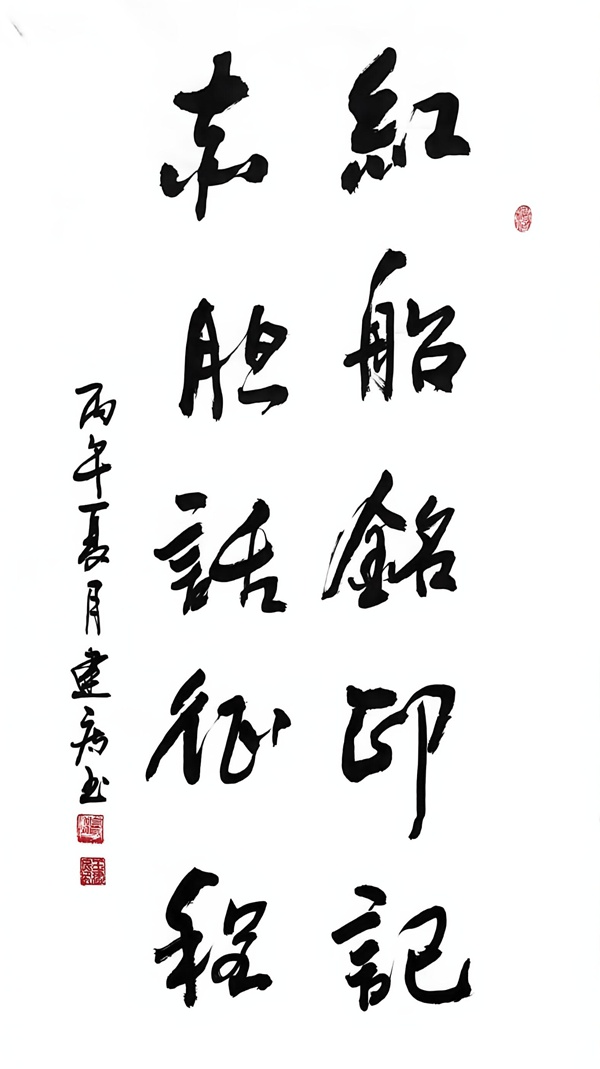 紅船銘印記
赤胆話征程
丙午夏月建